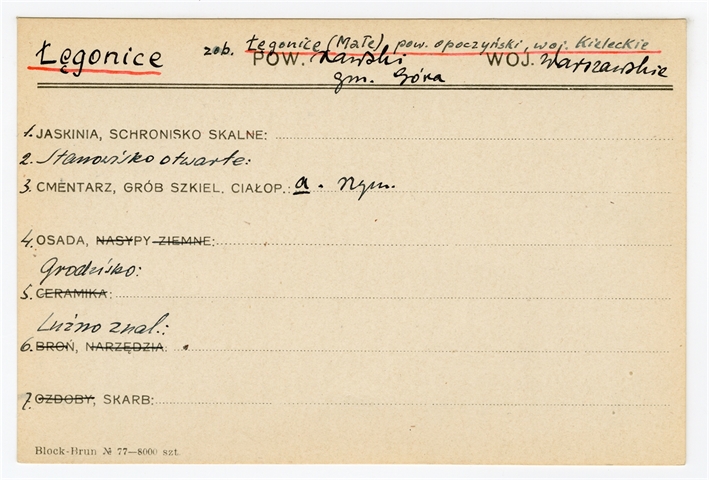 Łęgonice zob. Łęgonice (Małe), pow. opoczyński, woj. Kieleckie
POW. Rawski WOJ. warszawskie
gm. Góra
1. JASKINIA, SCHRONISKO SKALNE:
2. Stanowisko otwarte:
3. CMENTARZ, GRÓB SZKIEL. CIAŁOP.: a. rzym.
4. OSADA, NASYPY ZIEMNE:
Grodzisko:
5. CERAMIKA:
Luźno znal.:
6. BROŃ, NARZĘDZIA:
7. OZDOBY, SKARB:
Block-Brun № 77—8000 szt.